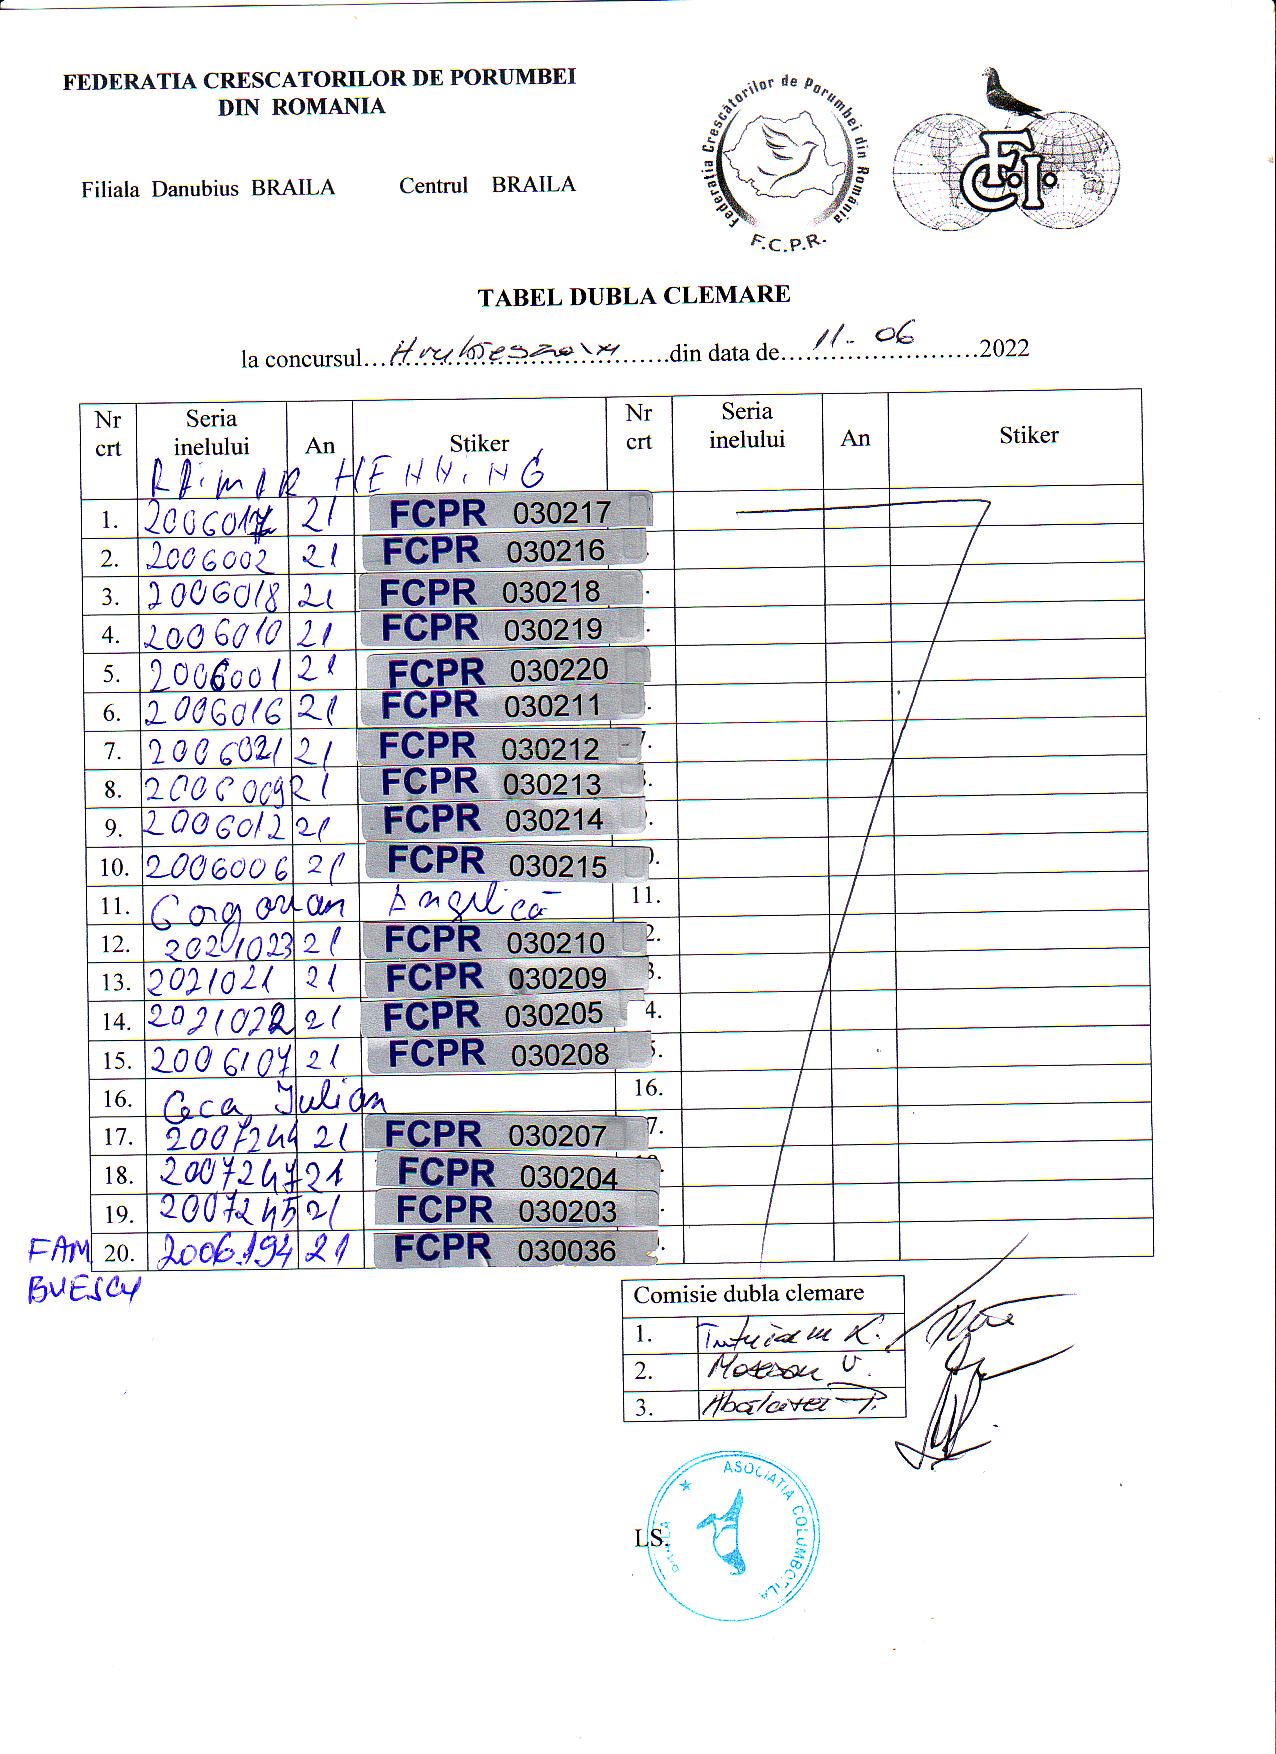 FEDERATIA CRESCATORILOR DE PORUMBEI
DIN ROMANIA
Filiala Danubius BRAILA Centrul BRAILA
Federatia Crescătorilor de Porumbei din România
F.C.P.R.
F.C.I.
TABEL DUBLA CLEMARE
la concursul....Hrubieszow.......din data de....11-06....2022
Nr crt Seria inelului An Stiker Nr crt Seria inelului An Stiker
HENNING
1. 2006017 21 FCPR 030217
2. 2006002 21 FCPR 030216
3. 2006018 21 FCPR 030218
4. 2006010 21 FCPR 030219
5. 2006001 21 FCPR 030220
6. 2006016 21 FCPR 030211
7. 2006021 21 FCPR 030212
8. 2006009 21 FCPR 030213
9. 2006012 21 FCPR 030214
10. 2006006 21 FCPR 030215
11. Gorgorian Angelică 11.
12. 2021023 21 FCPR 030210 2.
13. 2021021 21 FCPR 030209 3.
14. 2021022 21 FCPR 030205 4.
15. 2006107 21 FCPR 030208 5.
16. Ceca Iulian 16.
17. 2007244 21 FCPR 030207 7.
18. 2007247 21 FCPR 030204
19. 2007245 21 FCPR 030203
FAM 20. 2006194 21 FCPR 030036
BUESCU
Comisie dubla clemare
1.
2.
3.
LS.
ASOCIATIA COLUMBOFILA
BRAILA